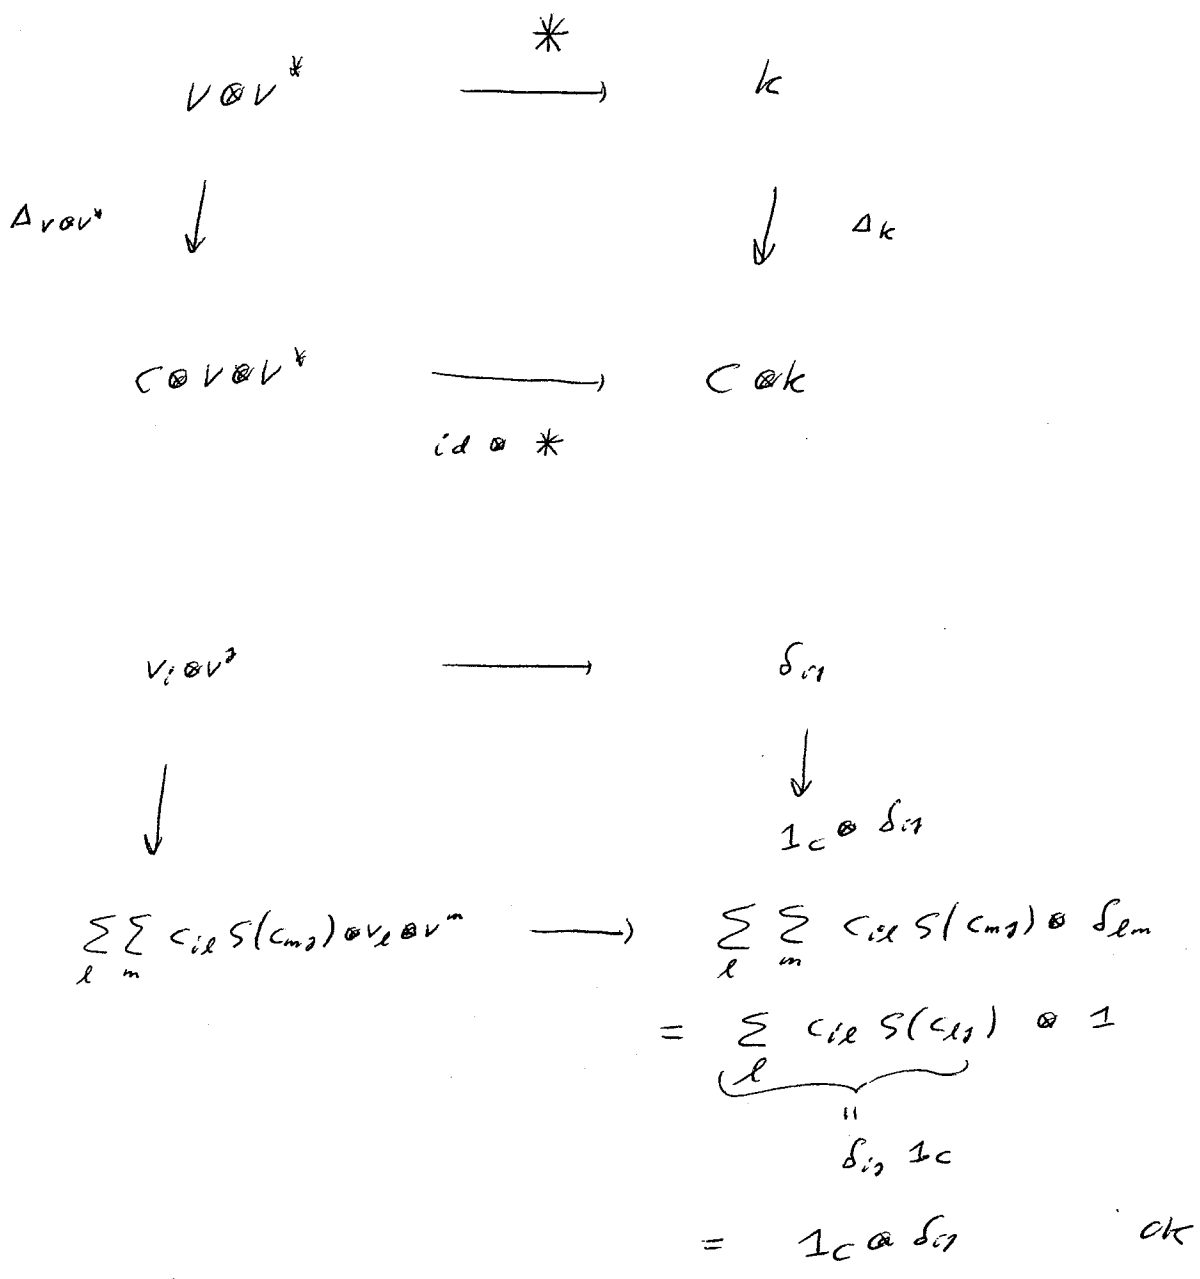 *
V⊗V* ⟶ k
Δ_{V⊗V*} ↓ ↓ Δ_k
C⊗V⊗V* ⟶ C⊗k
id ⊗ *
v_i⊗v^j ⟶ δ_{ij}
↓ ↓
1_C ⊗ δ_{ij}
∑_l ∑_m c_{il} S(c_{mj}) ⊗ v_l ⊗ v^m ⟶ ∑_l ∑_m c_{il} S(c_{mj}) ⊗ δ_{lm}
= ∑_l c_{il} S(c_{lj}) ⊗ 1
"
δ_{ij} 1_C
= 1_C ⊗ δ_{ij} ok